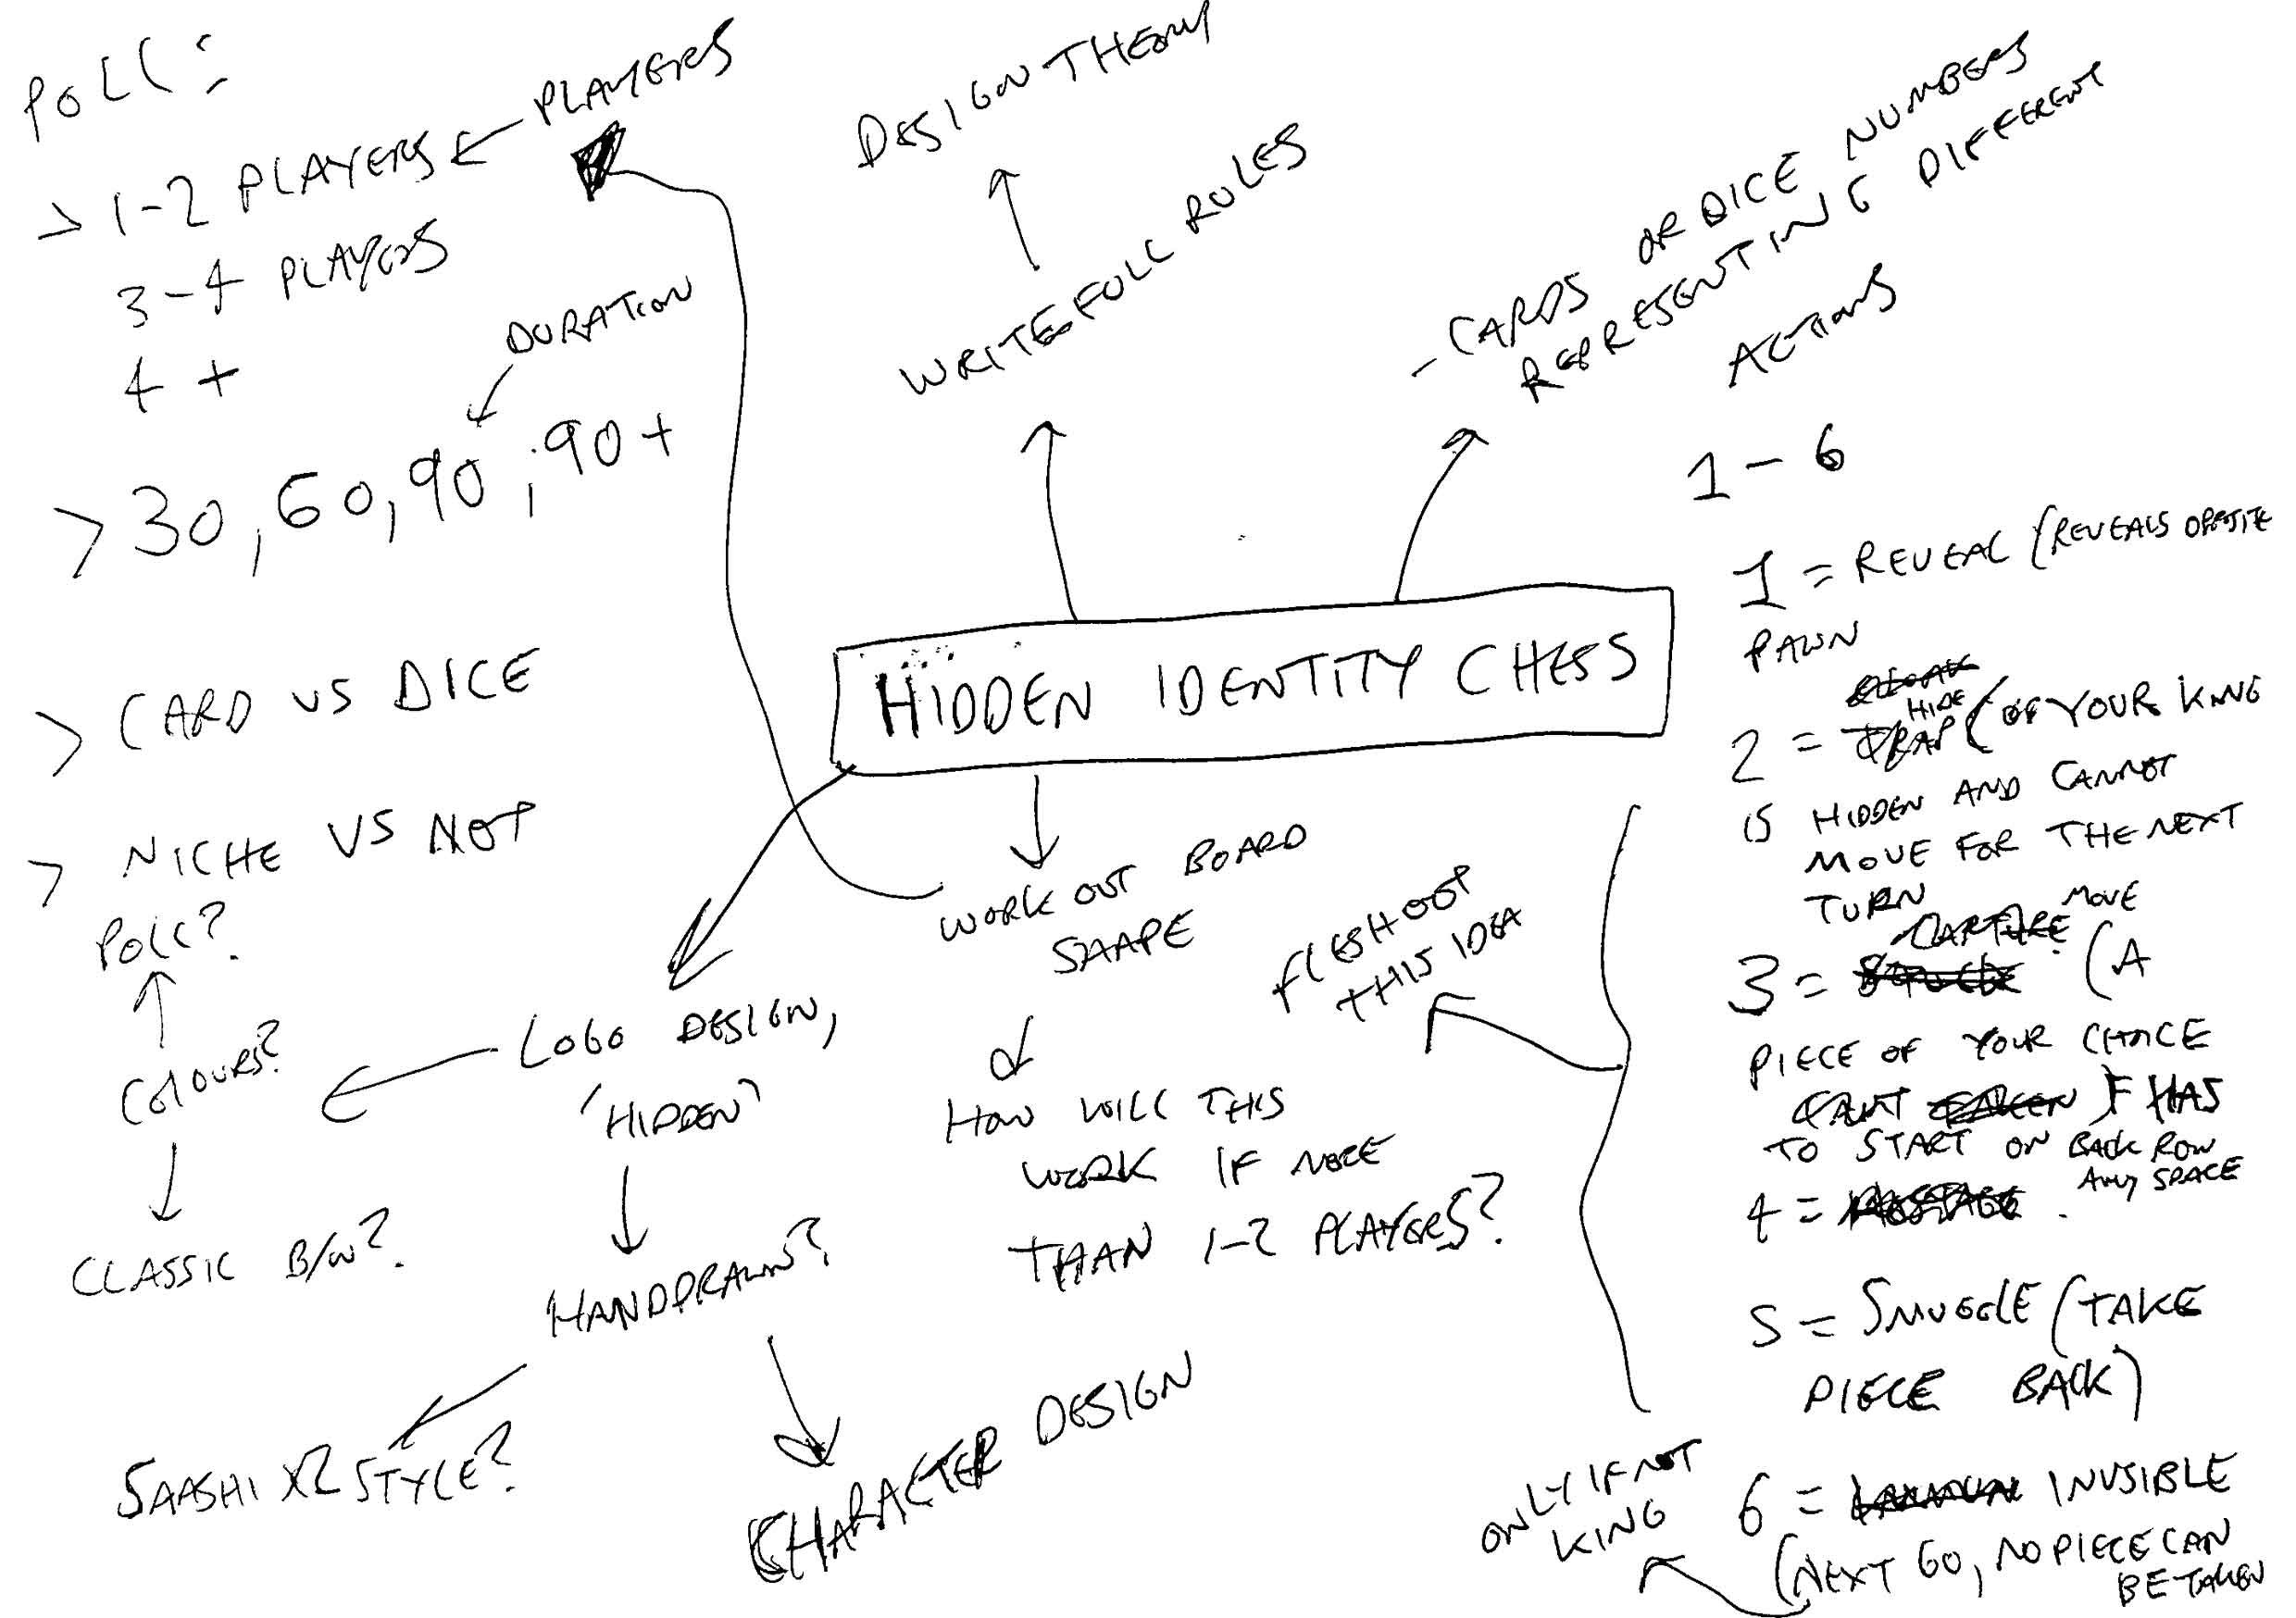 POLL:
> 1-2 PLAYERS
PLAYERS
3-4 PLAYERS
4 +
DURATION
> 30, 60, 90, 90+
> CARD VS DICE
> NICHE VS NOT
POLL?
COLOURS?
CLASSIC B/W?
DESIGN THEORY
WRITE FULL RULES
- CARDS OR DICE NUMBERS
REPRESENTING DIFFERENT
ACTIONS
HIDDEN IDENTITY CHESS
WORK OUT BOARD
SHAPE
HOW WILL THIS
WORK IF MORE
THAN 1-2 PLAYERS?
LOGO DESIGN,
'HIDDEN'
HANDDRAWN?
SAASHI X2 STYLE?
CHARACTER DESIGN
FLESH OUT
THIS IDEA
1-6
1 = REVEAL (REVEALS OPPOSITE
PAWN
HIDE
2 = TRAP (OF YOUR KING
IS HIDDEN AND CANNOT
MOVE FOR THE NEXT
TURN
MOVE
CAPTURE
3 = (A
PIECE OF YOUR CHOICE
CAN'T TAKEN HAS
TO START ON BACK ROW
ANY SPACE
4 =
5 = SMUGGLE (TAKE
PIECE BACK)
6 = INVISIBLE
(NEXT GO, NO PIECE CAN
BE TAKEN
ONLY IF NOT
KING